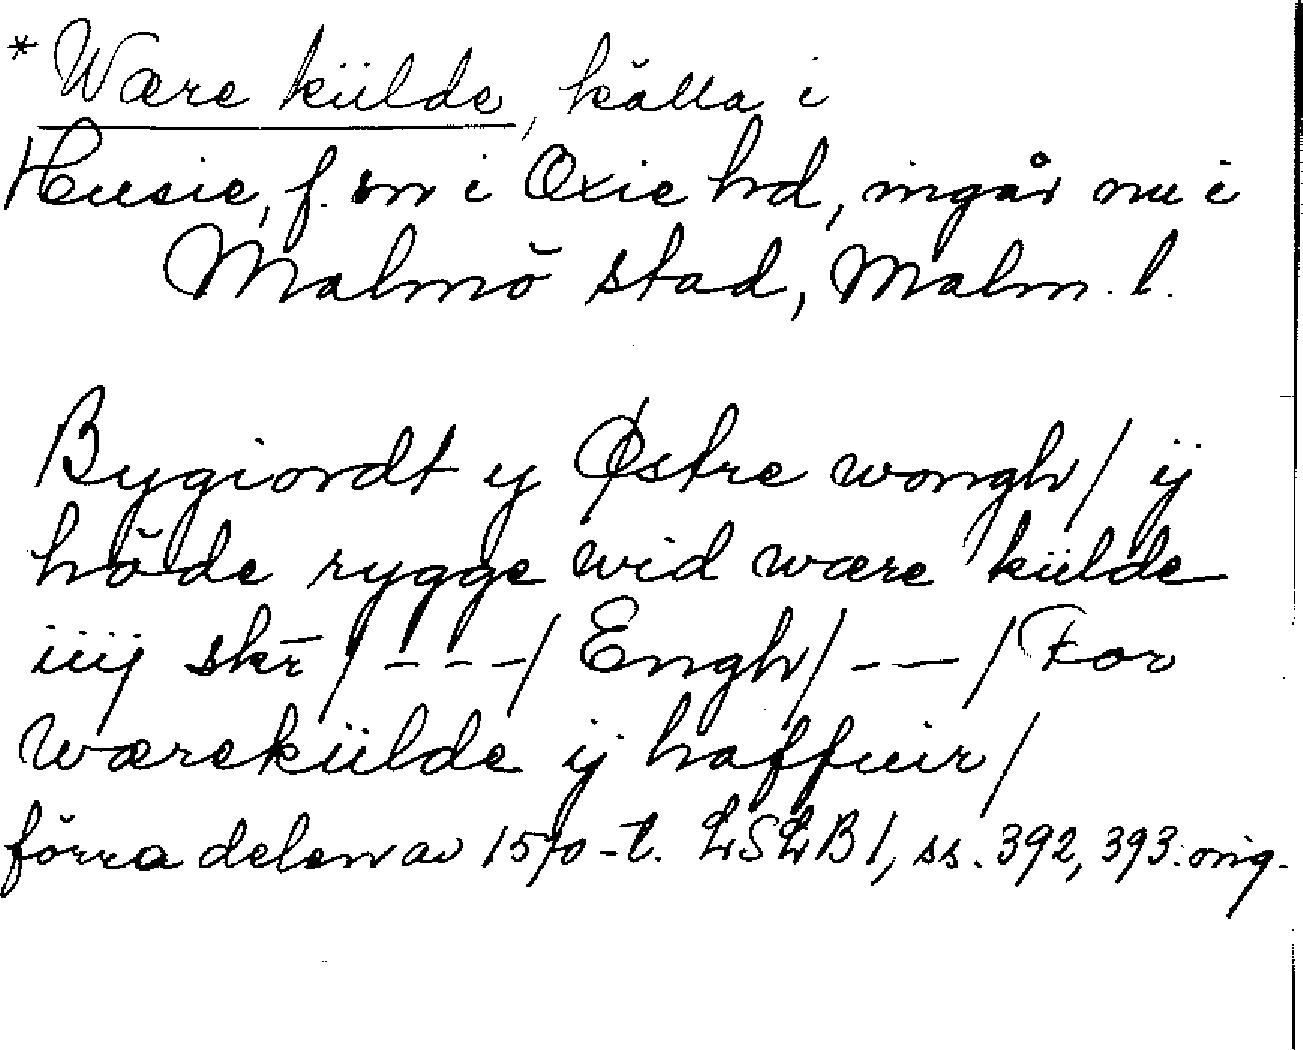 * Wære külde, källa i
Husie, f. sn i Oxie hd, ingår nu i
Malmö stad, Malm. l.
Bygiordt y Østre wongh / ij
höde rygge wid wære külde
iiij skr̄ / - - - / Engh / - - - / For
wærekülde ij haffuir /
förra delen av 1570-t. LSLB 1, ss. 392, 393. orig.